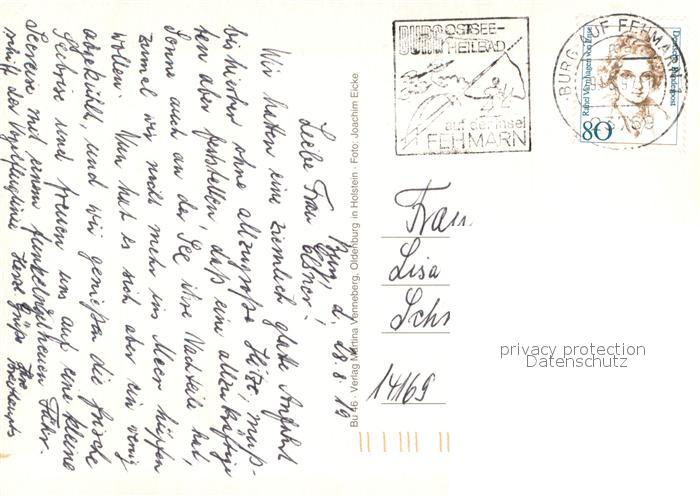 Burg, d. 28.8.19
Liebe Frau Elsner!
Wir hatten eine ziemlich glatte Anfahrt
bis hierher ohne allzugroße Hitze, muß-
ten aber feststellen, daß eine allzukräftige
Sonne auch an der See ihre Nachteile hat,
zumal wir nicht mehr ins Meer hüpfen
wollen. Nun hat es sich aber ein wenig
abgekühlt und wir genießen die frische
Seebrise und freuen uns auf eine kleine
Seereise mit einem funkelnagelneuen Fähr-
schiff der Vogelfluglinie. Herzl. Grüße Ihre
Bu 46 · Verlag Martina Venneberg, Oldenburg in Holstein · Foto: Joachim Eicke
BURG OSTSEE-
HEILBAD
auf der Insel
FEHMARN
BURG AUF FEHMARN
23769
Deutsche Bundespost
Rahel Varnhagen von Ense
80
Frau
Lisa
Schr
14169
privacy protection
Datenschutz